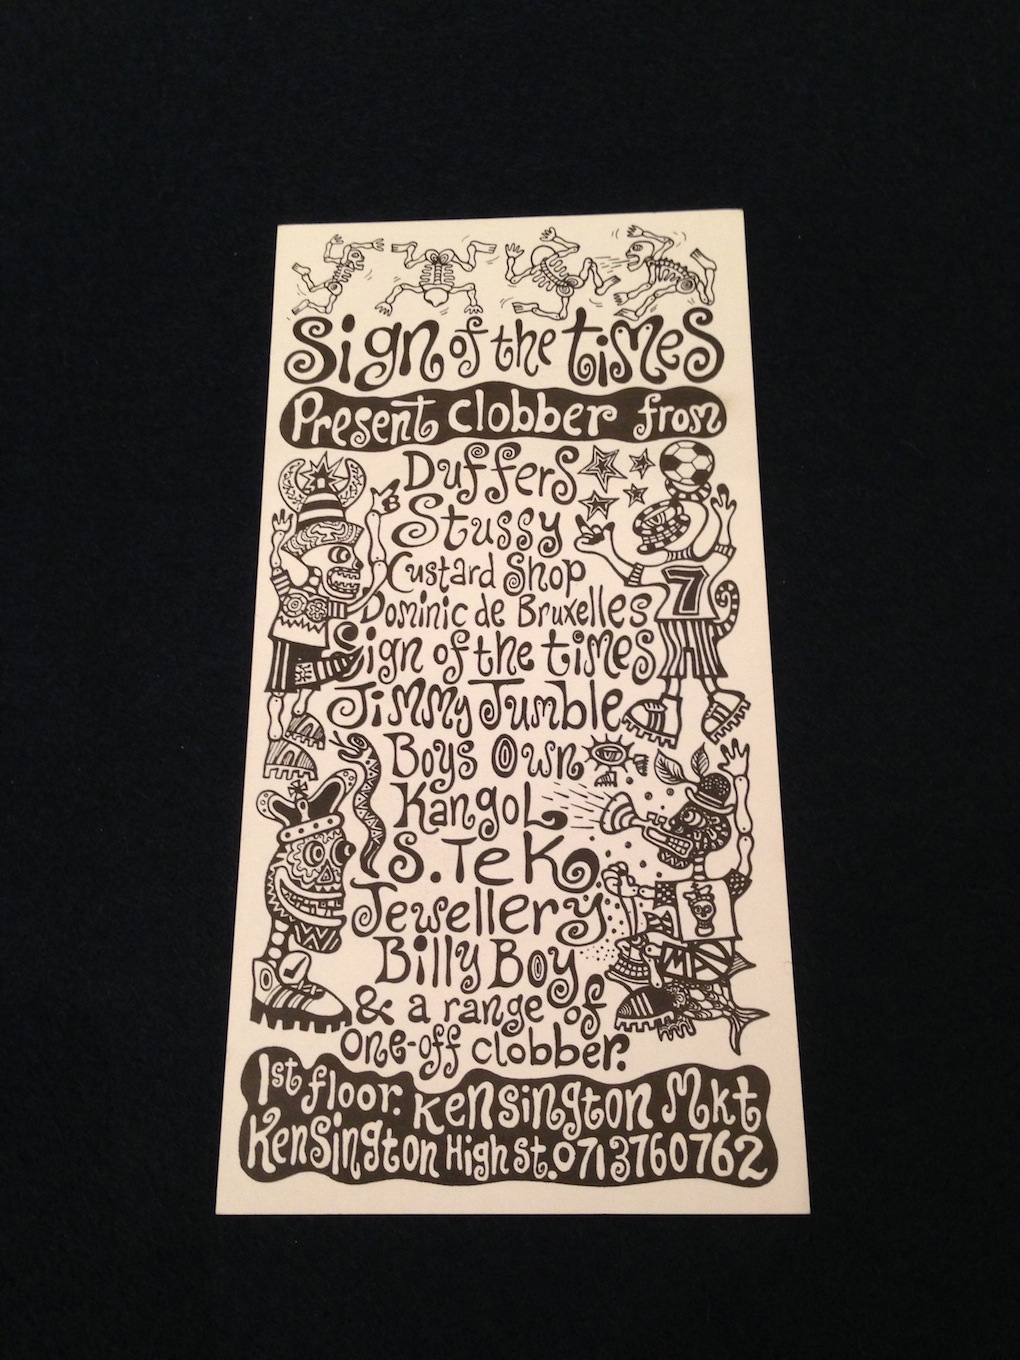 Sign of the times
Present clobber from
Duffers
Stussy
Custard Shop
Dominic de Bruxelles
Sign of the times
Jimmy Jumble
Boys Own
Kangol
S. Tek
Jewellery
Billy Boy
& a range of
one-off clobber.
1st floor. Kensington Mkt
Kensington High St. 0713760762
7